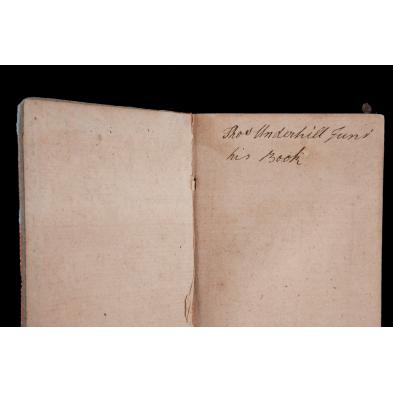 Thos Underhill Junr
his Book